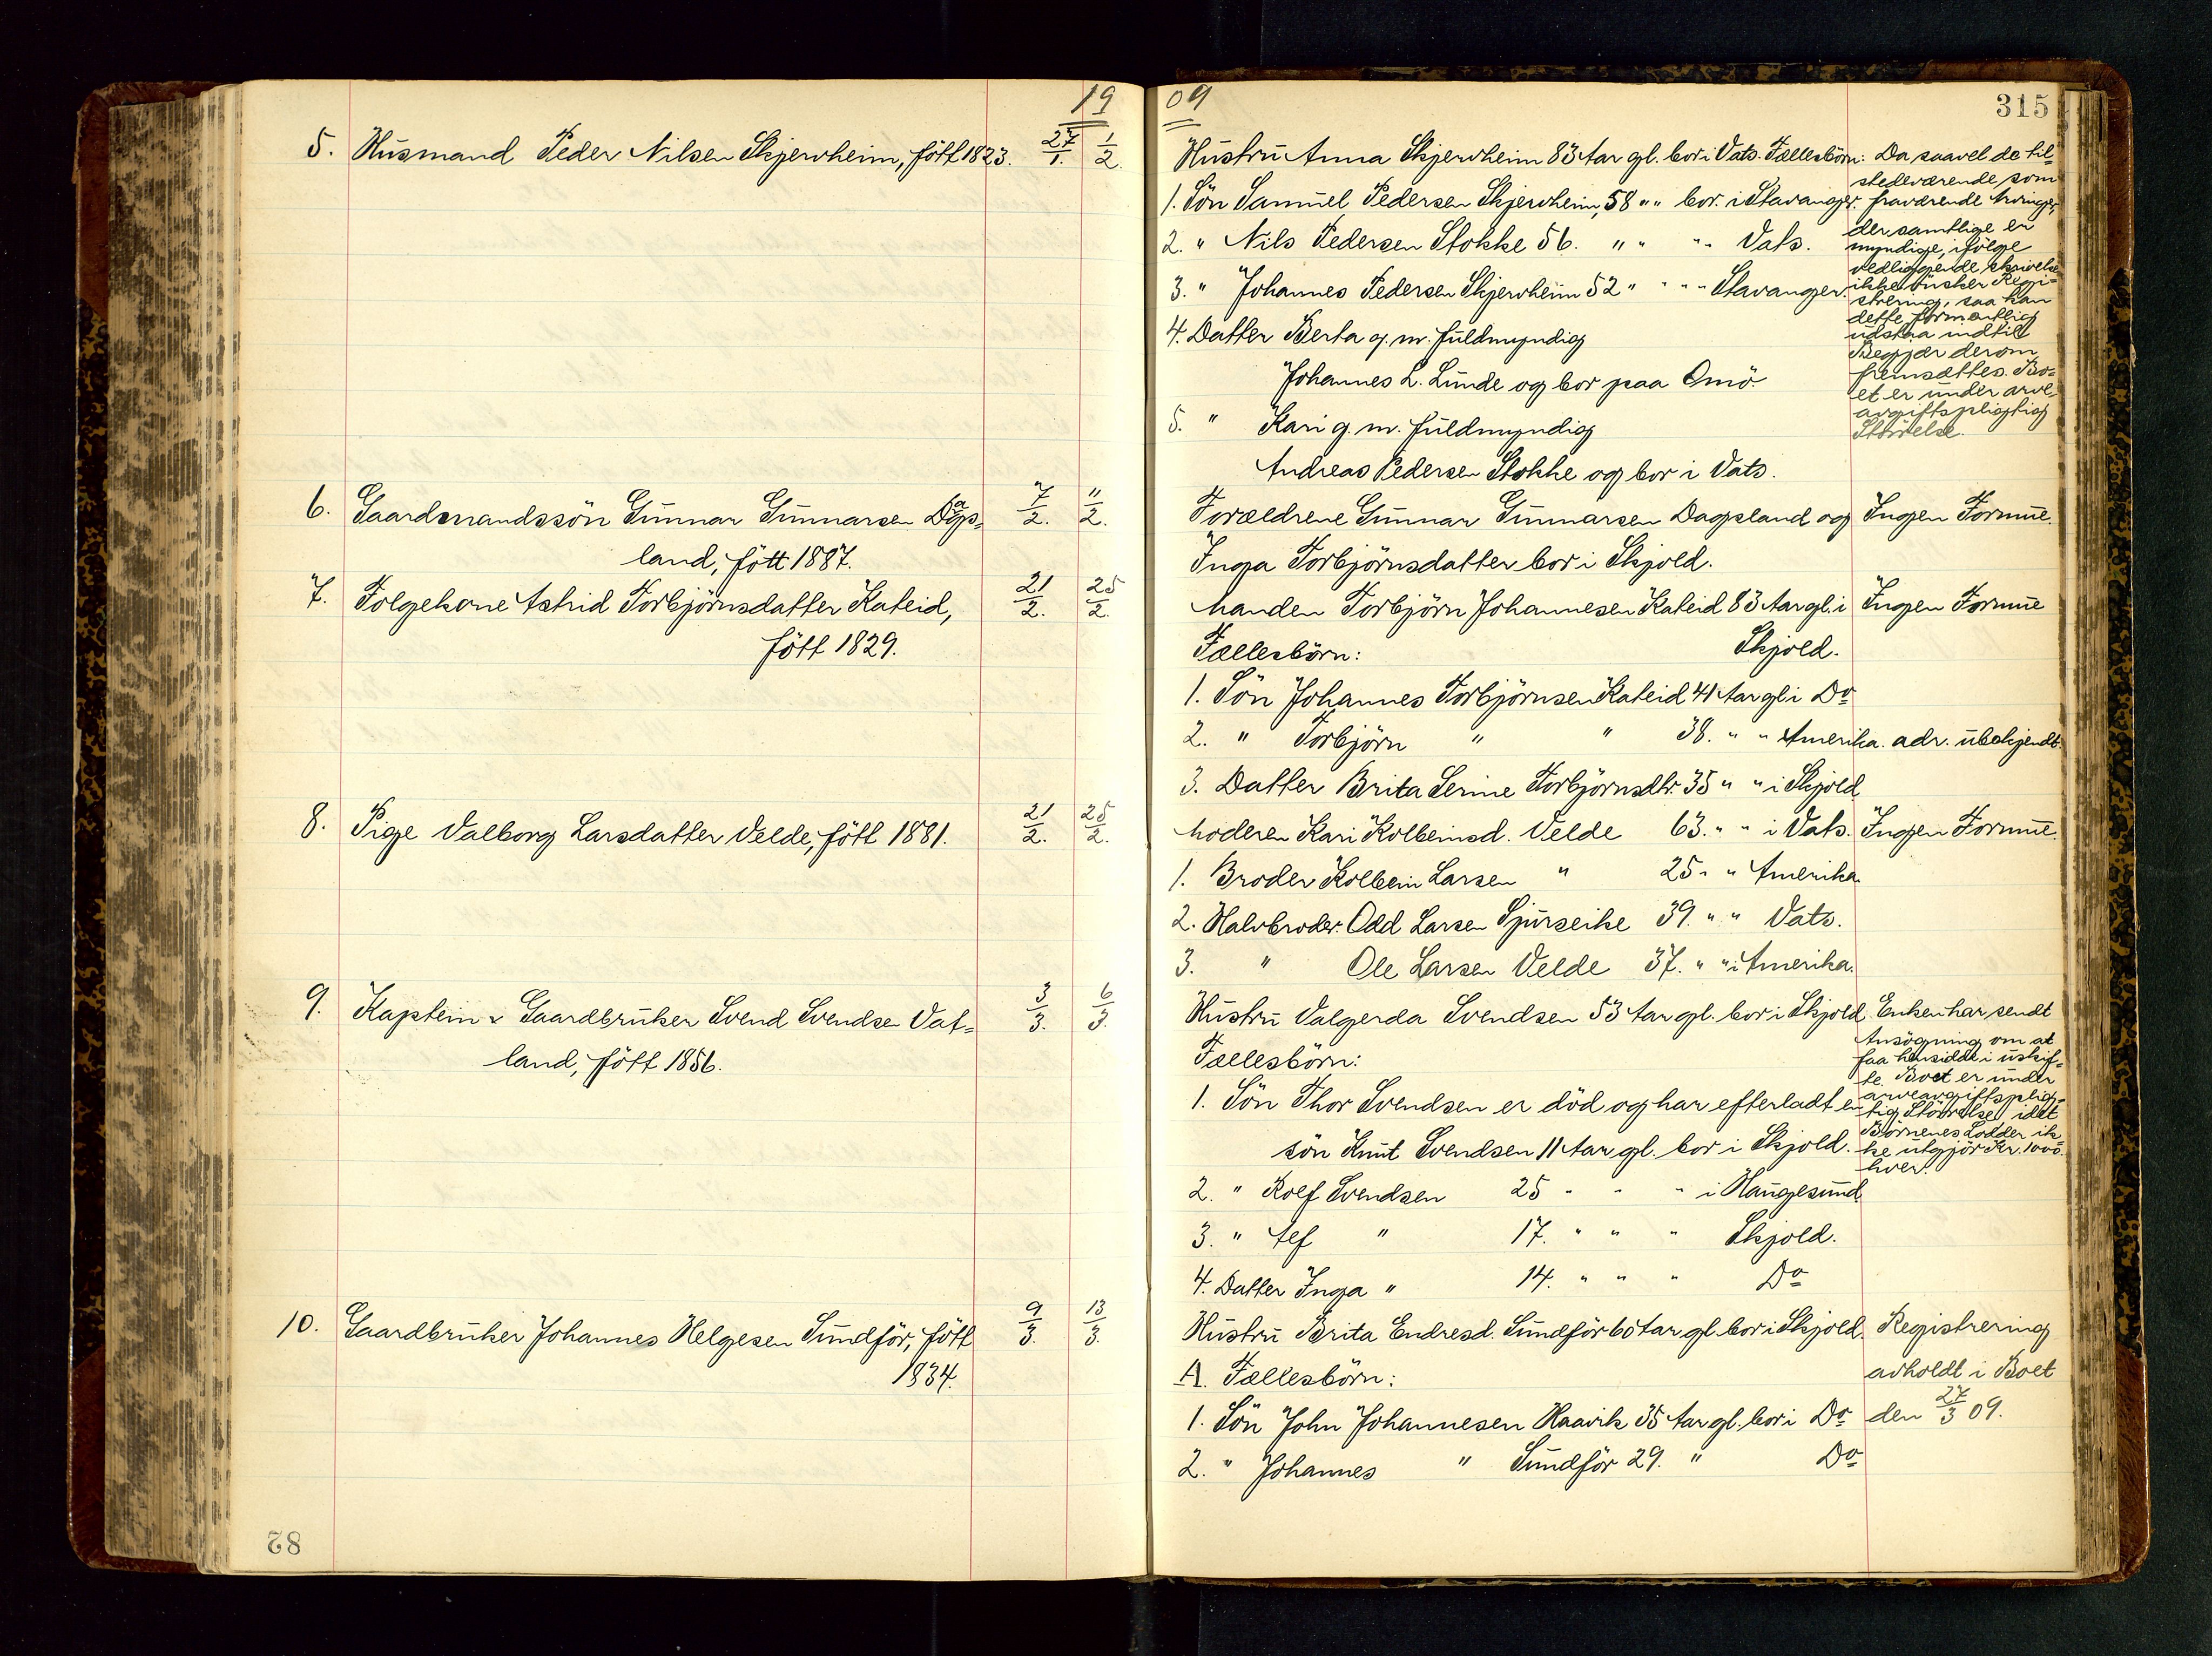 19
5. Husmand Peder Nilsen Skjervheim, født 1823. 27/1. 1/2.
6. Gaardmandssön Gunnar Gunnarsen Dags= 7/2. 11/2.
land, født 1887.
7. Folgekone Astrid Torbjörnsdatter Kateid, 21/2. 25/2.
født 1829.
8. Pige Valborg Larsdatter Velde, født 1881. 21/2. 25/2.
9. Kaptein & Gaardbruker Svend Svendsen Vat= 3/3. 6/3.
land, født 1856.
10. Gaardbruker Johannes Helgesen Sundför, født 9/3. 13/3.
1834.
82
09
315
Hustru Anna Skjervheim 83 Aar gl. bor i Vats. Fællesbörn:
1. Sön Samuel Pedersen Skjervheim, 58 " " bor i Stavanger.
2. " Nils Pedersen Stokke 56. " " " " Vats.
3. " Johannes Pedersen Skjervheim 52 " " " " Stavanger.
4. Datter Berta g. m. fuldmyndig
Johannes L. Lunde og bor paa Omö.
5. " Kari g. m. fuldmyndig
Andreas Pedersen Stokke og bor i Vats.
Da saavel de til=
stedeværende, som
fraværende Arvinger,
der samtlige er
myndige, ifölge
vedliggende skrivelse
ikke önsker Regi=
strering, saa kan
dette formentlig
udstaa indtil
Begjær derom
fremsættes. Bo=
et er under arve=
avgiftspligtig
Störrelse.
Forældrene Gunnar Gunnarsen Dagsland og Ingen Formue.
Inga Torbjörnsdatter bor i Skjold.
Manden Torbjörn Johannesen Kateid 83 Aar gl. i Ingen Formue
Fællesbörn: Skjold.
1. Sön Johannes Torbjörnsen Kateid 41 Aar gl i Do
2. " Torbjörn " " 38. " " Amerika. adr. ubekjendt.
3. Datter Brita Serine Torbjörnsdtr. 35 " " i Skjold
Moderen Kari Kolbeinsd. Velde 63. " " i Vats. Ingen Formue.
1. Broder Kolbein Larsen " 25 " " Amerika.
2. Halvbroder. Odd Larsen Sjurseike 39. " " Vats.
3. " Ole Larsen Velde 37. " " i Amerika.
Hustru Valgerda Svendsen 53 Aar gl. bor i Skjold
Fællesbörn:
1. Sön Thor Svendsen er död og har efterladt en
sön Knut Svendsen 11 Aar gl. bor i Skjold.
2. " Rolf Svendsen 25 " " " i Haugesund.
3. " Alf " 17. " " " Skjold.
4. Datter Inga " 14. " " " Do
Enken har sendt
Ansögning om at
faa hensidde i uskif=
te. Boet er under
arveavgiftsplig=
tig Störrelse idet
Börnenes Lodder ik=
ke utgjör Kr. 1000.
hver.
Hustru Brita Endresd. Sundför 60 Aar gl. bor i Skjold. Registrering
A. Fællesbörn: avholdt i Boet
1. Sön John Johannesen Haavik 35 Aar gl. bor i Do den 27/3 09.
2. " Johannes " Sundför 29. " Do